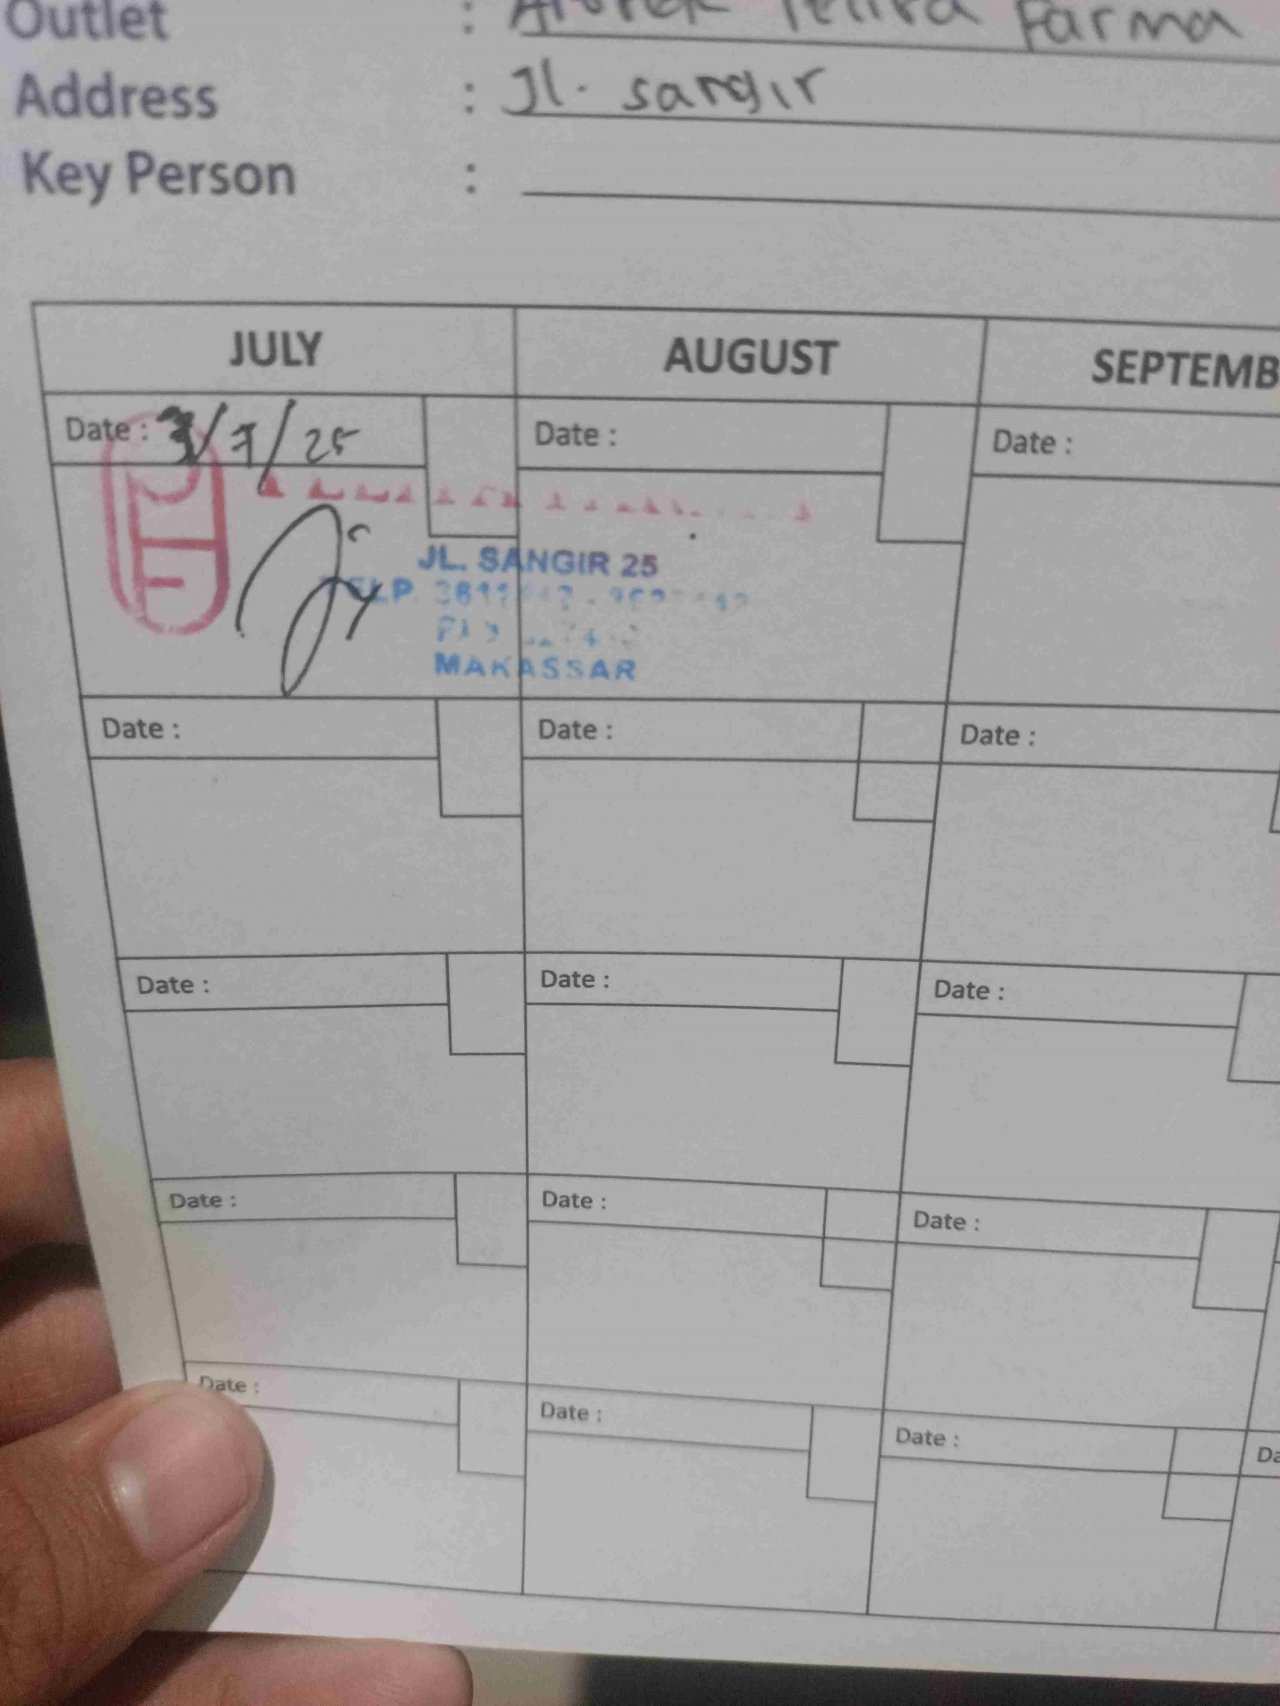 Outlet : Farma
Address : Jl. sangir
Key Person :
JULY AUGUST SEPTEMB
Date : 3/7/25 Date : Date :
JL. SANGIR 25
TELP.
MAKASSAR
Date : Date : Date :
Date : Date : Date :
Date : Date : Date :
Date : Date : Date : Da